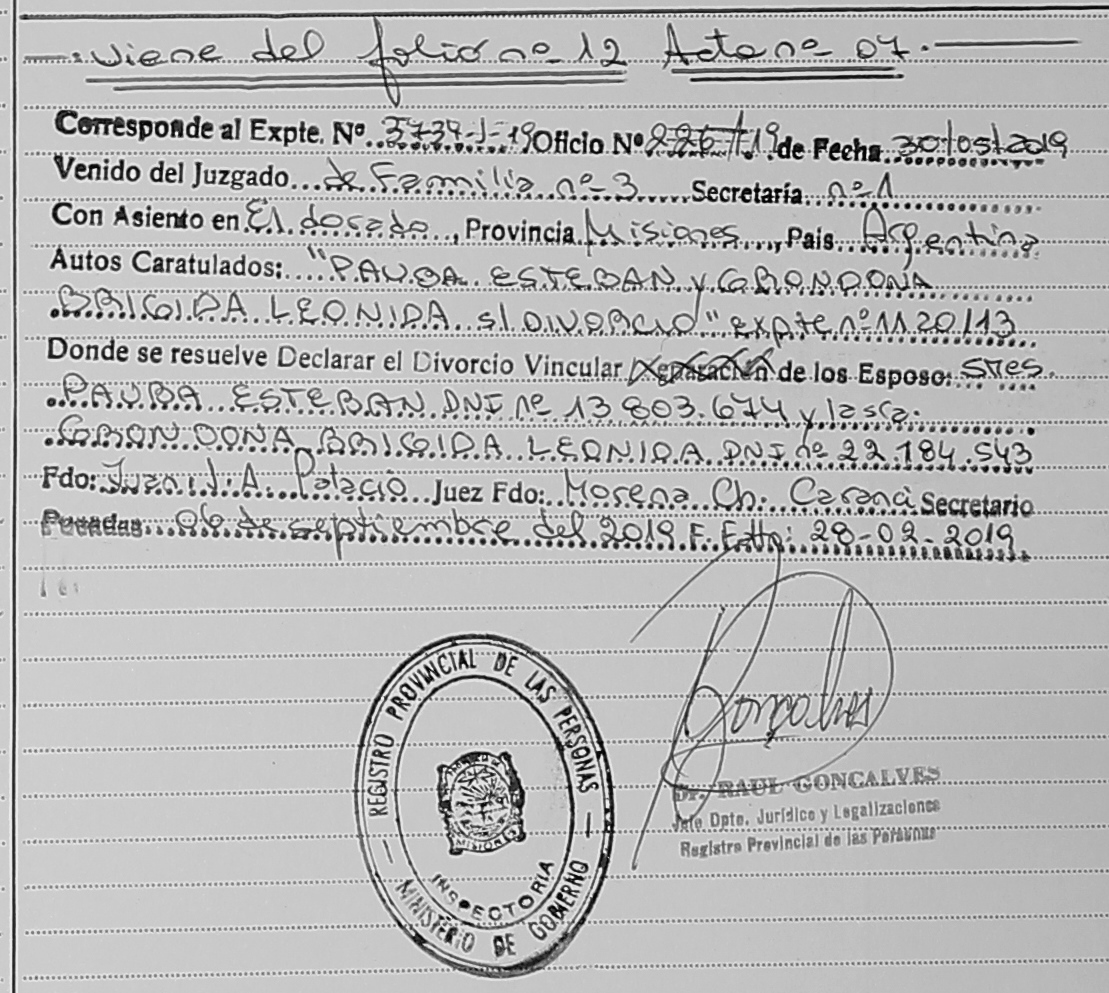 viene del folio nº 12 Acta nº 07.
Corresponde al Expte. Nº 3739-J-19 Oficio Nº 226/19 de Fecha 30/05/2019
Venido del Juzgado de Familia nº 3 Secretaría nº 1
Con Asiento en El dorado, Provincia Misiones, Pais Argentina
Autos Caratulados: "PAUBA ESTEBAN y GRONDONA
BRIGIDA LEONIDA s/ DIVORCIO" expte nº 1120/13
Donde se resuelve Declarar el Divorcio Vincular Separación de los Esposo: Sres.
PAUBA ESTEBAN DNI nº 13.803.674 y la sra.
GRONDONA BRIGIDA LEONIDA DNI nº 22.184.543
Fdo: Juan J. A. Palacio Juez Fdo: Morena Ch. Secretario
Posadas 06 de septiembre del 2019 F. Etto: 28-02-2019
REGISTRO PROVINCIAL DE LAS PERSONAS
MISIONES
INSPECTORIA
MINISTERIO DE GOBIERNO
Goncalves
Dr. RAUL GONCALVES
Jefe Dpto. Jurídico y Legalizaciones
Registro Provincial de las Personas